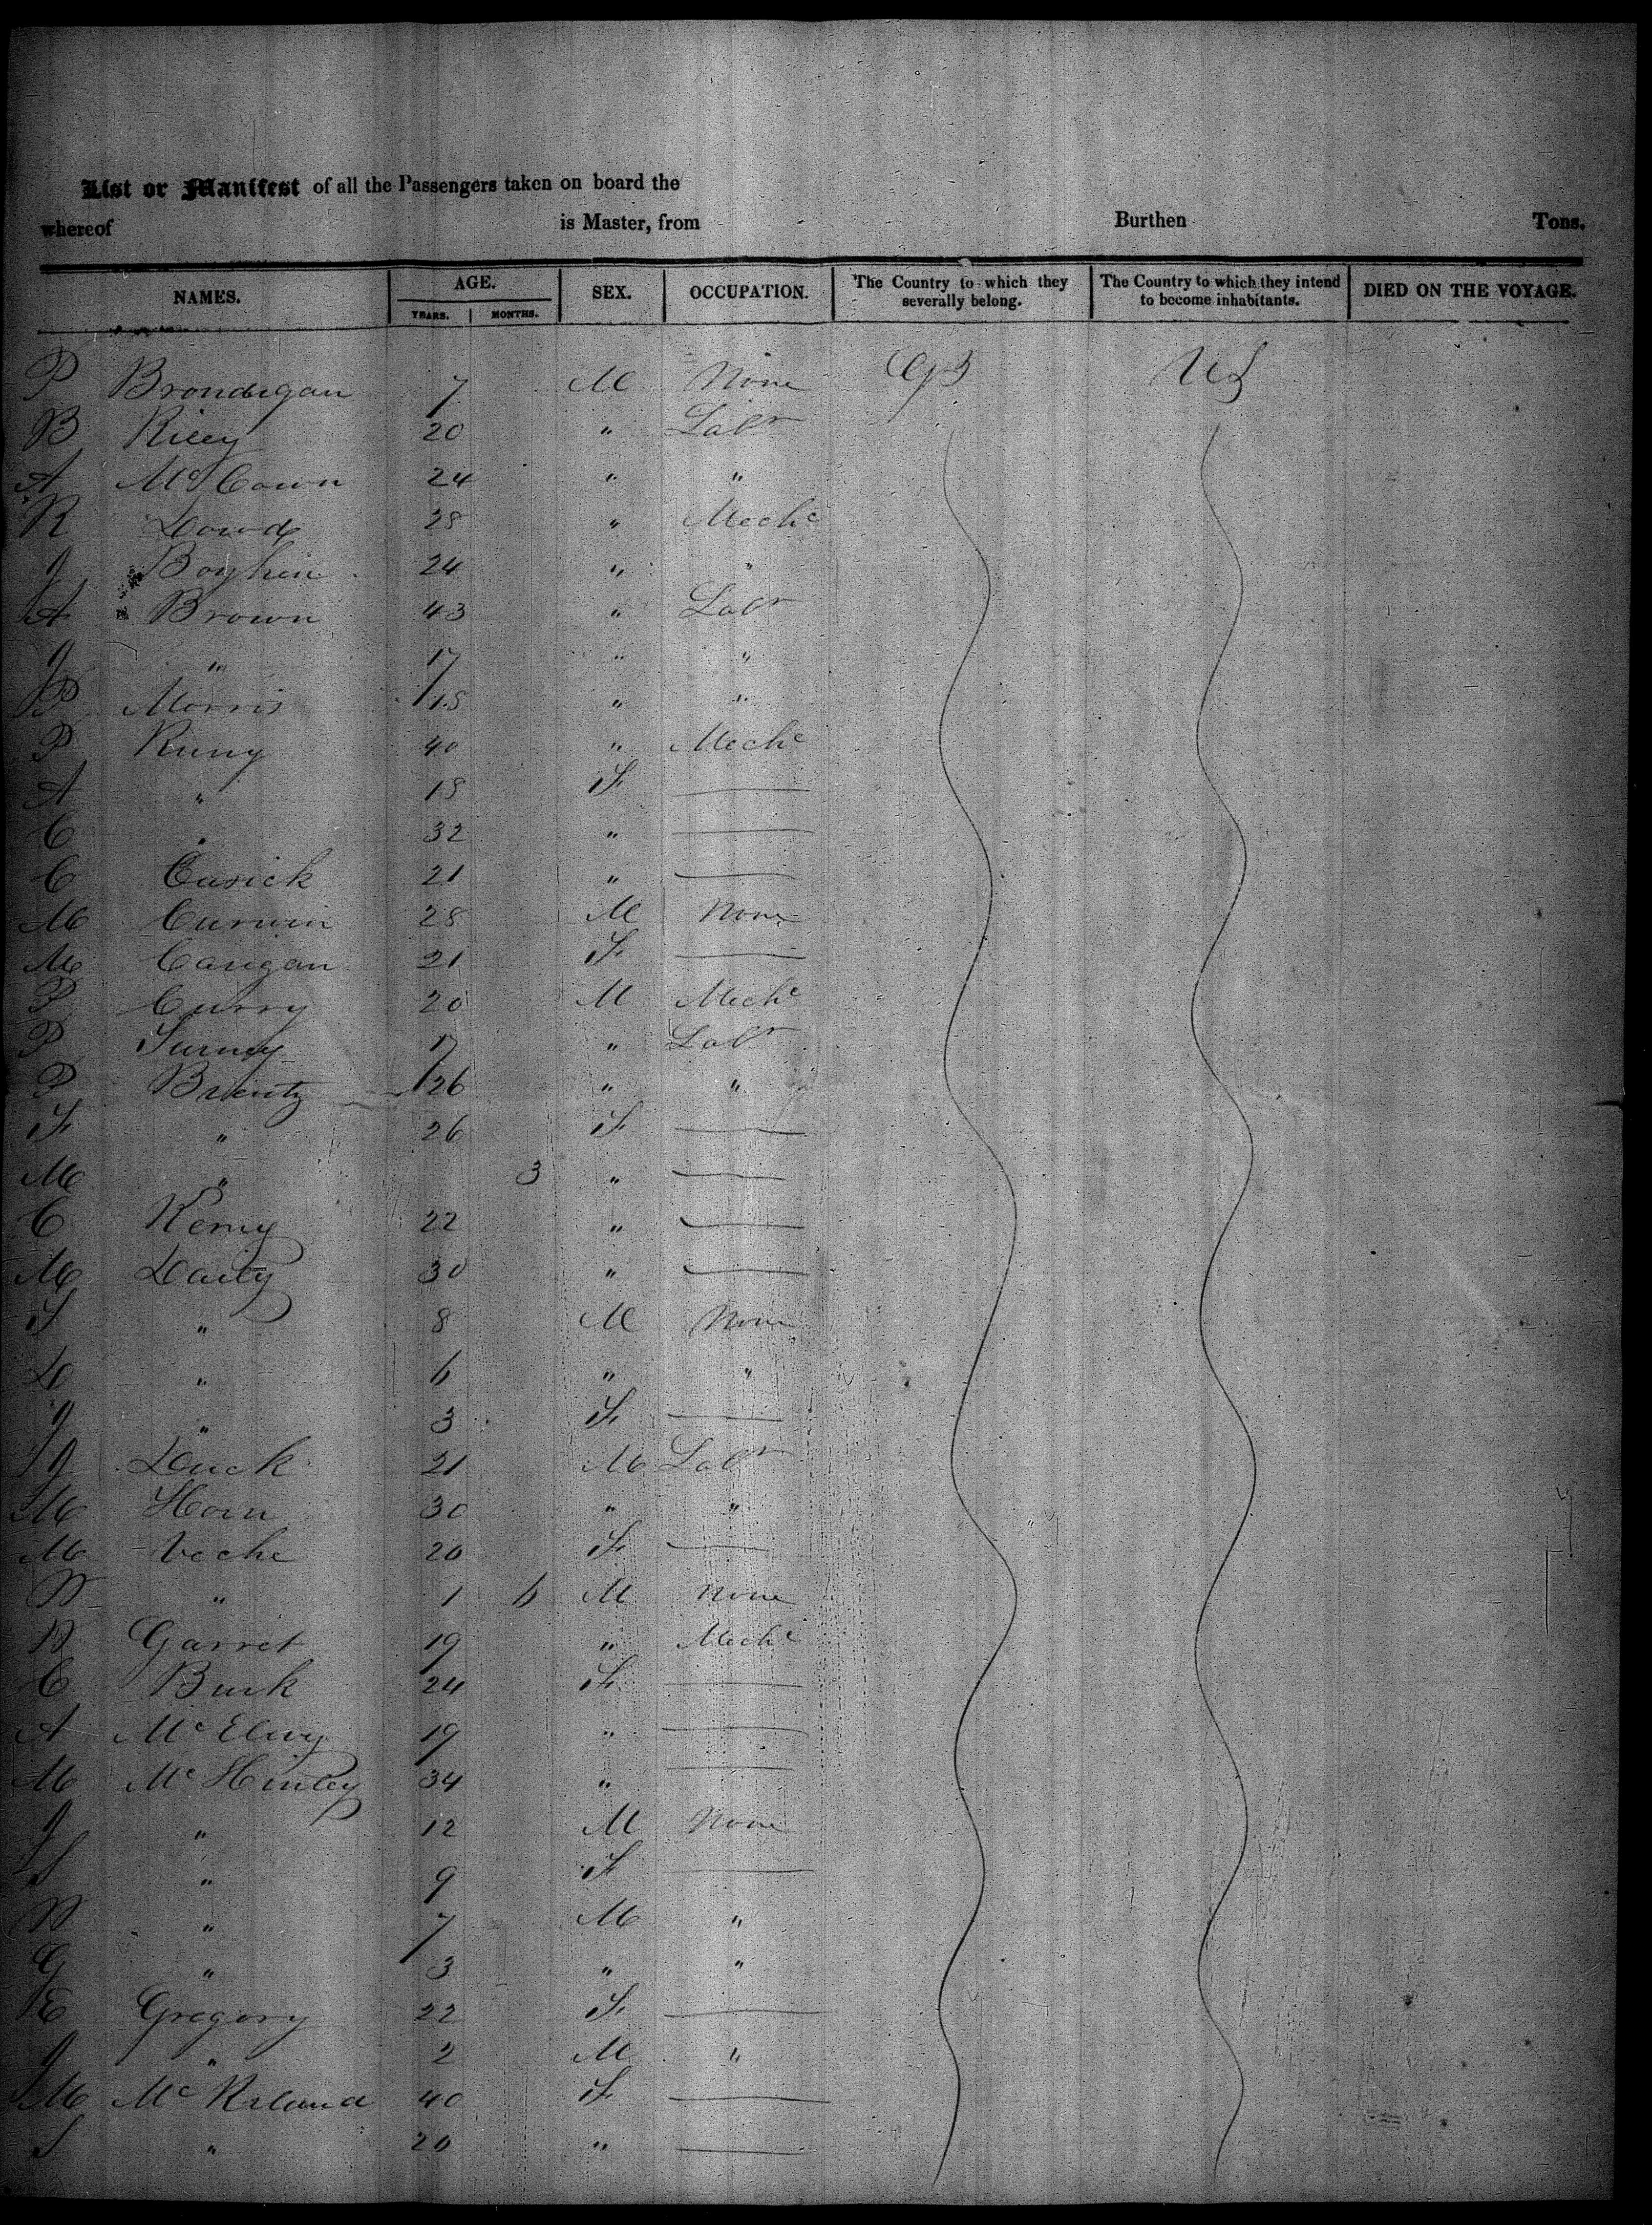 List or Manifest of all the Passengers taken on board the
whereof is Master, from Burthen Tons.
NAMES. AGE. YEARS. MONTHS. SEX. OCCUPATION. The Country to which they severally belong. The Country to which they intend to become inhabitants. DIED ON THE VOYAGE.
P Brondigan 7 M None US
B Riley 20 " Labr
A Mc Cown 24 " "
R Dowd 28 " Mechc
J Boyhin 24 " "
A Brown 43 " Labr
J " 17 " "
P Morris 18 " "
P Runy 40 " Mechc
A " 18 F
C " 32 "
C Cusick 21 "
M Curwin 28 M None
M Carigan 21 F
P Curry 20 M Mechc
P Turney 17 " Labr
P Brientz 26 " "
F " 26 F
M " 3 "
C Kerny 22 "
M Daily 30 "
S " 8 M None
D " 6 " "
J " 3 F
J Duck 21 M Labr
M Horn 30 " "
M Veche 20 F
" 1 6 M None
Garret 19 " Mechc
C Burk 24 F
A Mc Elvry 19 "
M Mc Hinley 34 "
J " 12 M None
S " 9 F
" 7 M "
G " 3 " "
E Gregory 22 F
J " 2 M "
M Mc 40 F
S " 20 "